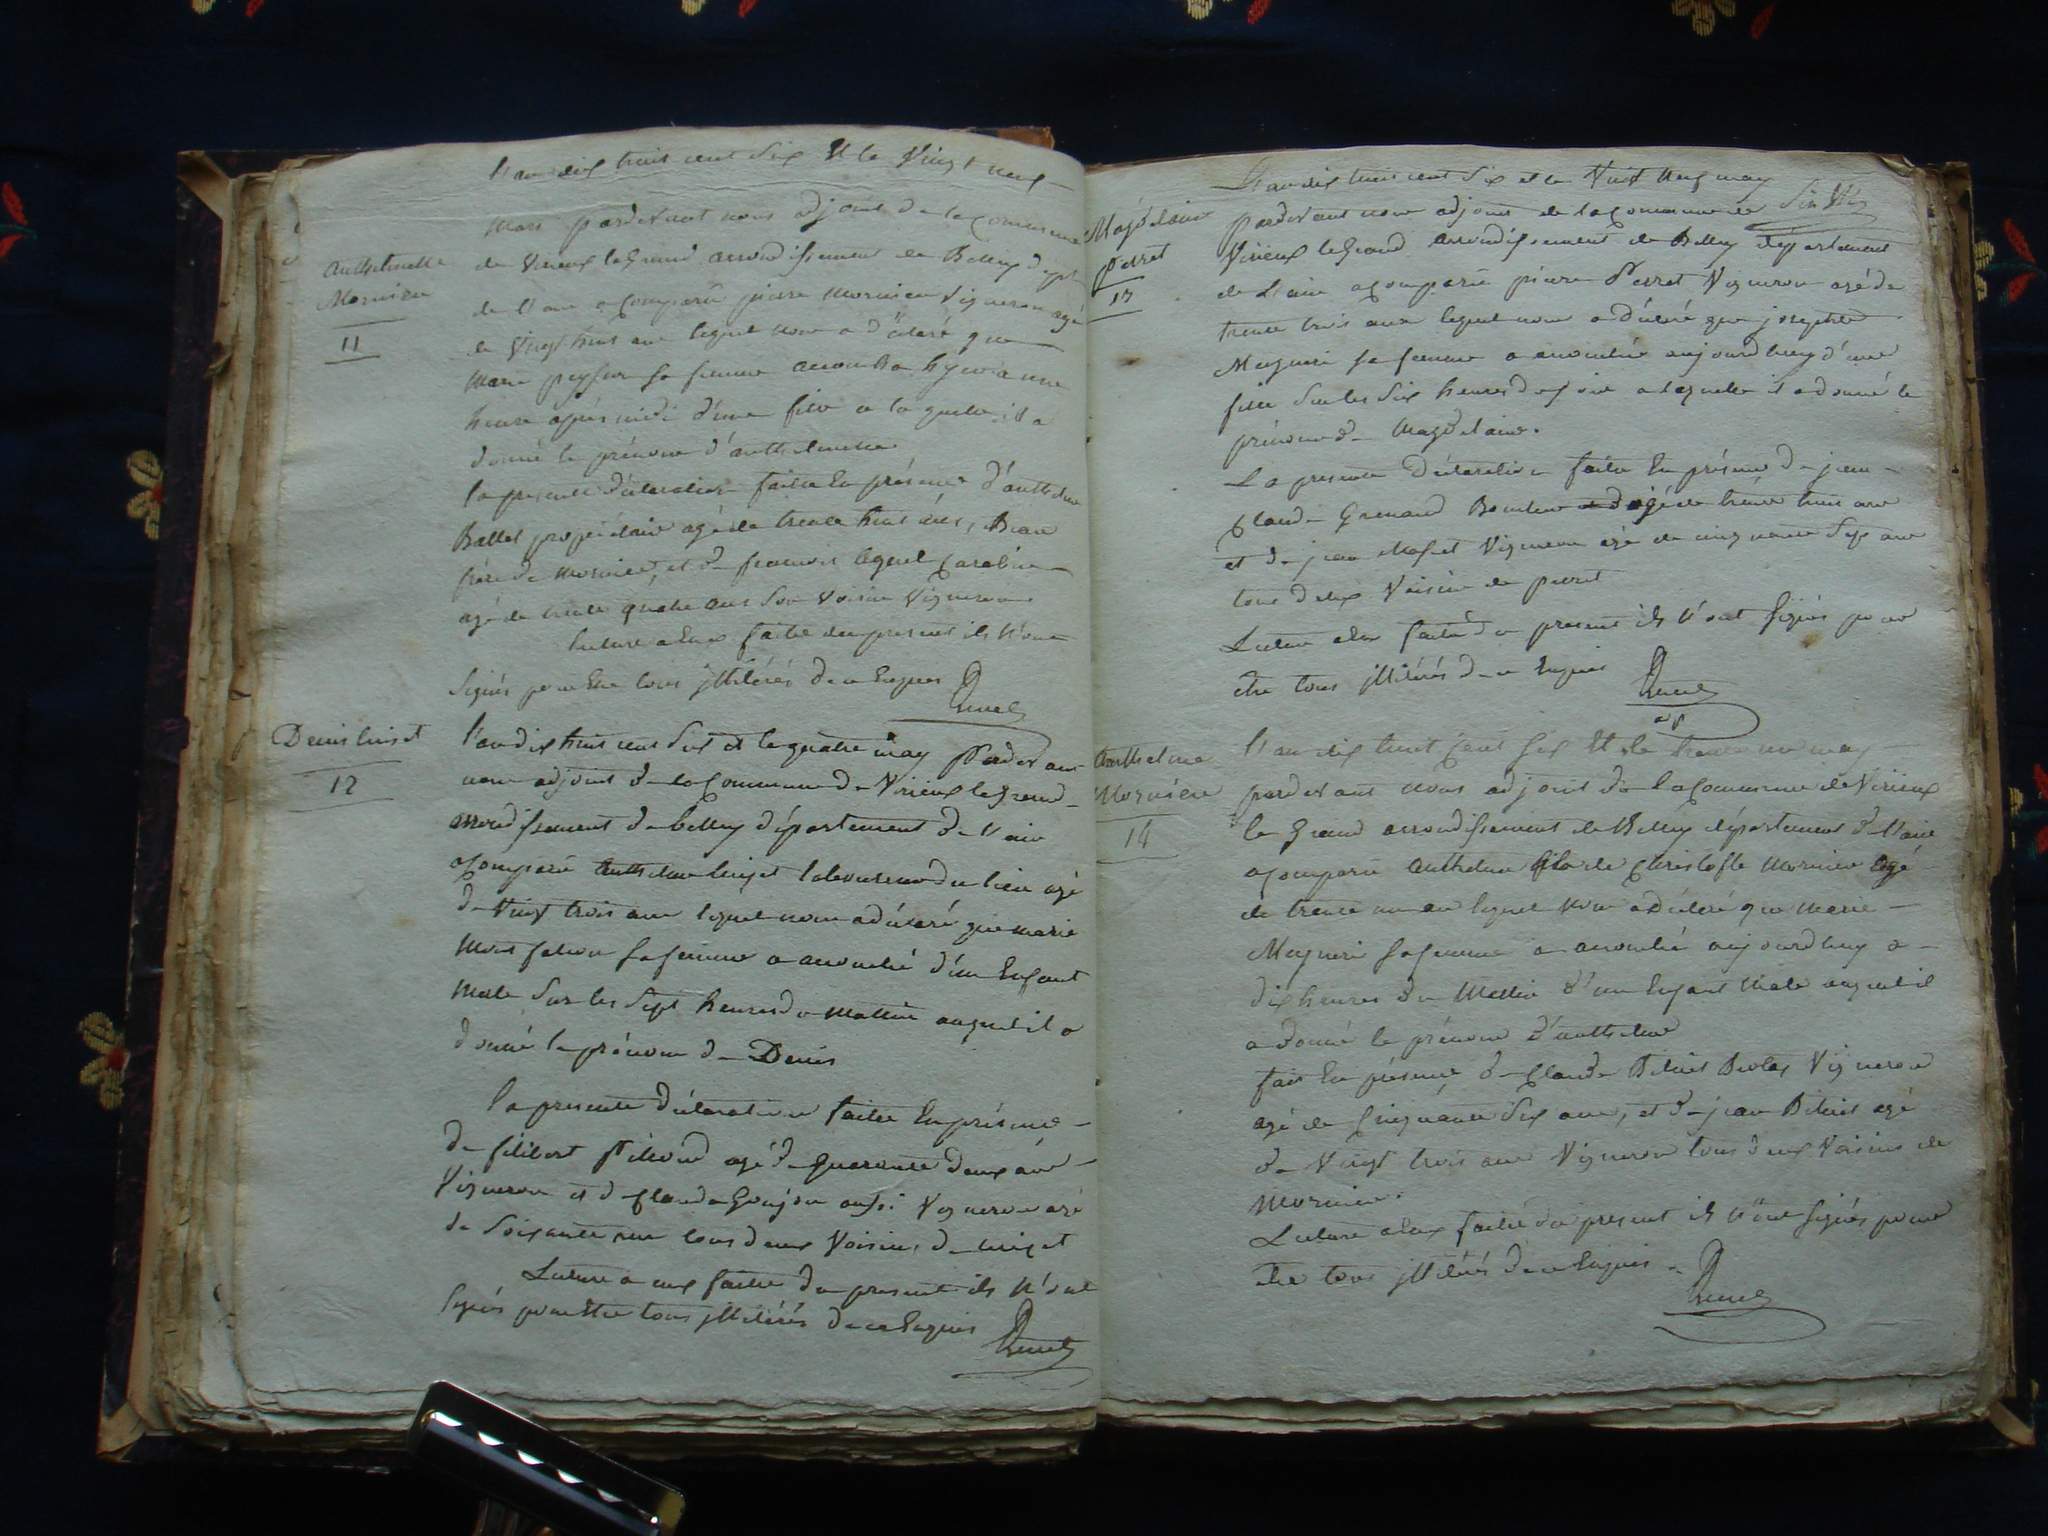 l'an dix huit cent six et le vingt neuf
mars pardevant nous adjoint de la commune
de Virieux le grand arrondissement de Belley dépt
de l'ain a comparu pierre mornieu vigneron agé
de vingt huit ans lequel nous a déclaré que
marie sa femme accoucha hyer a une
heure après midi d'une fille a laquelle il a
donné le prénom d'anthelmette
la presente déclaration faitte en présence d'anthelme
Ballet propriétaire agé de trente huit ans, Beau
frère de mornieu, et de francois
agé de trente quatre ans son voisin vigneron
lecture a eux faitte du present ils n'ont
signés pour etre tous illitérés de ce enquis
Anthelmette
Mornieu
11
Denis luiset
12
l'an dix huit cent six et le quatre may pardevant
nous adjoint de la commune de Virieux le grand
arrondissement de belley département de l'ain
a comparu anthelme luiset laboureur du lieu agé
de vingt trois ans lequel nous a déclaré que marie
sa femme a accouché d'un enfant
male sur les sept heures du mattin auquel il a
donné le prénom de Denis
la presente déclaration faitte en présence
de filibert agé de quarante deux ans
vigneron et de claude goujon aussi vigneron agé
de soixante ans tous deux voisins de luiset
Lecture a eux faitte du present ils n'ont
signés pour etre tous illitérés de ce enquis
L'an dix huit cent six et le vint neuf may
Magdelaine
perret
13
pardevant nous adjoint de la commune de
Virieux le grand arrondissement de Belley département
de L'ain a comparu pierre Perret vigneron agé de
trente trois ans lequel nous a déclaré que josephte
Meygneri sa femme a accouchée aujourdhuy d'une
fille sur les six heures du soir a laquelle il a donné le
prénom de Magdelaine.
La presente déclaration faitte en présence de jean
claude Grenard agé de trente trois ans
et de jean vigneron agé de cinquante six ans
tous deux voisin de perret
Lecture a eux faitte du present ils n'ont signés pour
etre tous illitérés de ce enquis
Anthelme
Mornieu
14
l'an dix huit cent six et le trente un may
pardevant nous adjoint de la commune de Virieux
le grand arrondissement de Belley département de l'ain
a comparu anthelme fils de christofle mornieu agé
de trente un an lequel nous a déclaré que Marie
Meygneri sa femme a accouché aujourdhuy a
dix heures du mattin d'un enfant male auquel il
a donné le prénom d'anthelme
fait en présence de claude vigneron
agé de cinquante six ans, et de jean agé
de vingt trois ans vigneron tous deux voisins de
mornieu.
Lecture a eux faitte du present ils n'ont signés pour
etre tous illitérés de ce enquis